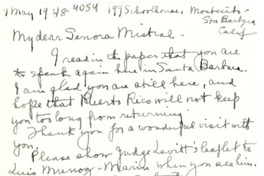 7 May 1948 4054 199 Schoolhouse, Montecito -
Sta Barbara
Calif
My dear Senora Mistral -
I read in the paper that you are
to speak again here in Santa Barbara.
I am glad you are still here, and
hope that Puerto Rico will not keep
you too long from returning.
Thank you for a wonderful visit with
you.
Please show Judge Levitt's leaflet to
Luis Munoz-Marin when you see him.